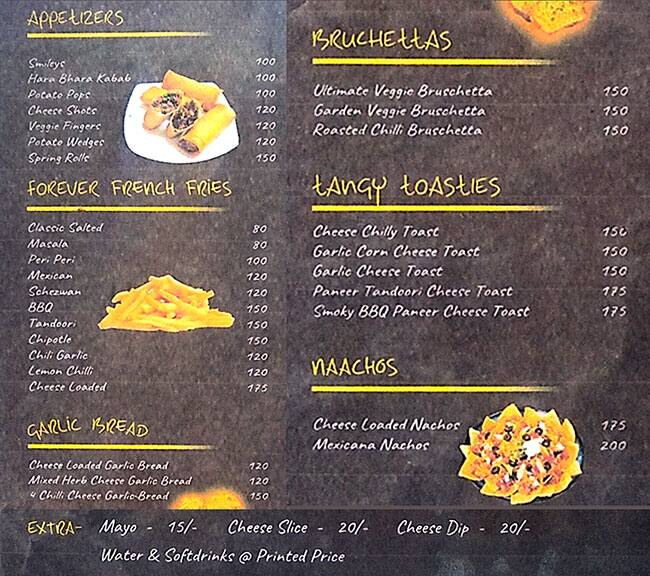 APPETIZERS
Smileys 100
Hara Bhara Kabab 100
Potato Pops 100
Cheese Shots 120
Veggie Fingers 120
Potato Wedges 120
Spring Rolls 150
FOREVER FRENCH FRIES
Classic Salted 80
Masala 80
Peri Peri 100
Mexican 120
Schezwan 120
BBQ 150
Tandoori 150
Chipotle 150
Chili Garlic 120
Lemon Chilli 120
Cheese Loaded 175
GARLIC BREAD
Cheese Loaded Garlic Bread 120
Mixed Herb Cheese Garlic Bread 120
4 Chilli Cheese Garlic-Bread 150
BRUCHETTAS
Ultimate Veggie Bruschetta 150
Garden Veggie Bruschetta 150
Roasted Chilli Bruschetta 150
TANGY TOASTIES
Cheese Chilly Toast 150
Garlic Corn Cheese Toast 150
Garlic Cheese Toast 150
Paneer Tandoori Cheese Toast 175
Smoky BBQ Paneer Cheese Toast 175
NAACHOS
Cheese Loaded Nachos 175
Mexicana Nachos 200
EXTRA- Mayo - 15/- Cheese Slice - 20/- Cheese Dip - 20/-
Water & Softdrinks @ Printed Price